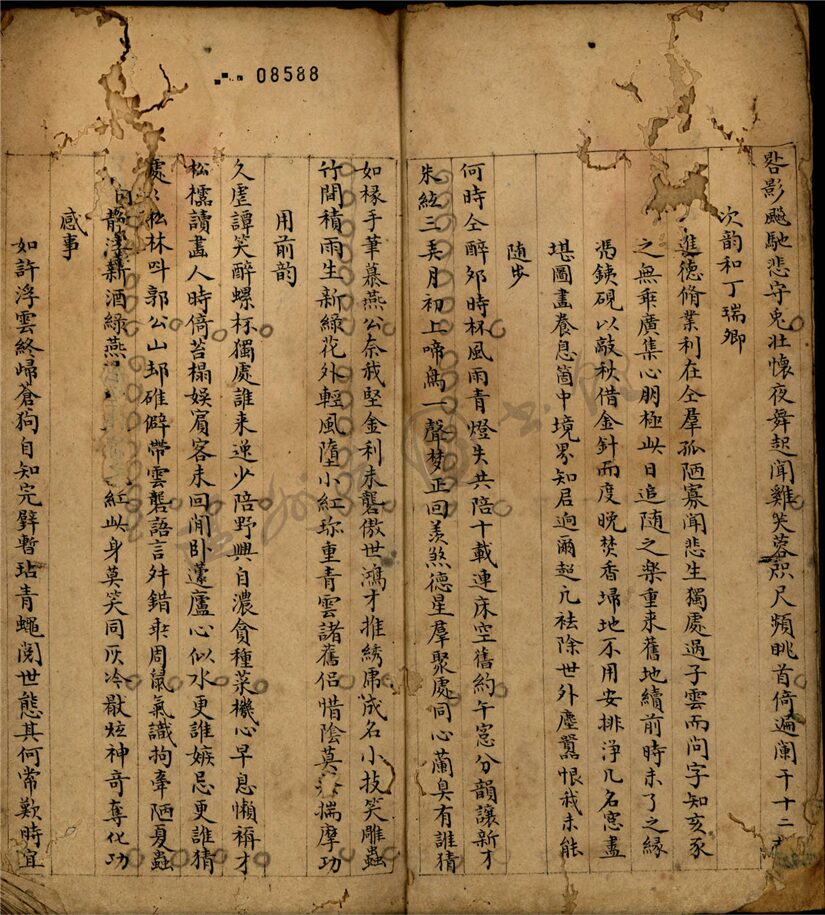 08588
咎影颷馳悲守兎壯懷夜舞起闻雞芙蓉咫尺頻眺首倚遍闌干十二
次韵和丁瑞卿
進德脩業利在仝羣孤陋寡聞悲生獨處過子雲而问字知亥豕
之無乖廣集心朋極此日追随之樂重来舊地續前時未了之緣
馮銕硯以敲秋借金針而度晚焚香埽地不用安排淨几名窓盡
堪圖畫養息箇中境界知君逈爾超凢祛除世外塵嚣恨我未能
随步
何時仝醉夘時杯風雨青燈失共陪十載連床空舊約午窓分韻讓新才
朱絃三弄月初上啼鳥一聲梦正回羡煞德星羣聚處同心蘭臭有誰猜
如椽手筆慕燕公奈我堅金利未礱傲世鴻才推綉虎成名小技笑雕蟲
竹間積雨生新綠花外輕風墮小紅珎重青雲諸舊侣惜陰莫揣摩功
用前韵
久虛譚笑醉螺杯獨處誰来逆少陪野興自濃貪種菜機心早息懶稱才
松櫺讀畫人時倚苔榻娱賓客未回閒卧蘧廬心似水更誰嫉忌更誰猜
處々松林叫郭公山邨碓僻帶雲礱語言舛錯乖周鼠氣識拘牽陋夏蟲
新酒綠燕紅此身莫笑同灰冷厭炫神奇奪化功
感事
如許浮雲終歸蒼狗自知完璧暫玷青蠅阅世態其何常歎時宜